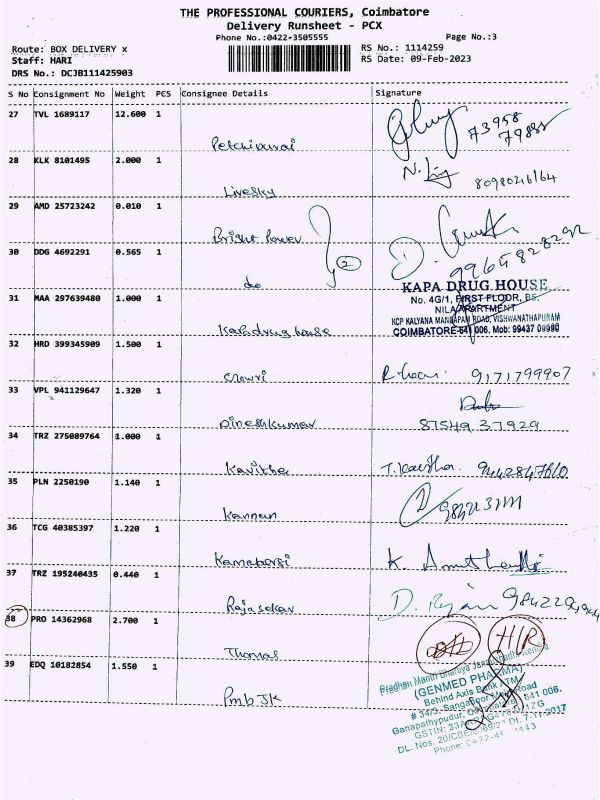 THE PROFESSIONAL COURIERS, Coimbatore
Delivery Runsheet - PCX
Phone No.:0422-3505555
Page No.:3
Route: BOX DELIVERY x
RS No.: 1114259
Staff: HARI
RS Date: 09-Feb-2023
DRS No.: DCJB111425903
S No Consignment No Weight PCS Consignee Details Signature
27 TVL 1689117 12.600 1
73958
79885
Petchidurai
28 KLK 8101495 2.000 1
8098026164
Livesky
29 AMD 25723242 0.010 1
Bright Power
30 DDG 4692291 0.565 1
2
do
9965828292
KAPA DRUG HOUSE
No. 4G/1, FIRST FLOOR,
NILA APARTMENT
31 MAA 297639480 1.000 1
KCP KALYANA MANDAPAM ROAD, VISHWANATHAPURAM
COIMBATORE-641 006. Mob: 99437 09990
Kapa drug house
32 HRD 399345909 1.500 1
Gowri
9171799907
33 VPL 941129647 1.320 1
Dineshkumar
87549 37929
34 TRZ 275089764 1.000 1
Kavitha
T. Kavitha. 9442847610
35 PLN 2250190 1.140 1
Kannan
36 TCG 40385397 1.220 1
Kamatersi
K
37 TRZ 195240435 0.440 1
Rajasekar
D.
38 PRO 14362968 2.700 1
H/R
Thomas
39 EDQ 10182854 1.550 1
Pradhan Mantri Bhartiya Janaushadhi Kendra
(GENMED PHARMA)
Behind Axis Bank ATM
# 34/3, Sanganoor Main Road
Ganapathypudur, Coimbatore - 641 006.
GSTIN:
DL. Nos. 20/CBE Dt. 7-11-2017
Phone: 0422-
Pmb JK